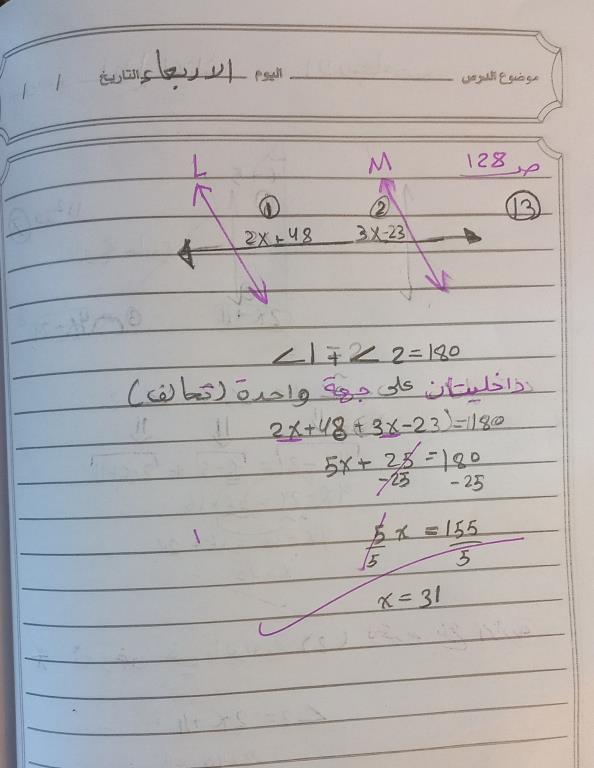 موضوع الدرس اليوم الاربعاء التاريخ / /
ص 128
L M
13
1 2
2x+48 3x-23
∠1 + ∠2 = 180
داخليتان على جهة واحدة (تحالف)
2x+48+3x-23)=180
5x+25=180
-25 -25
5x = 155
5 5
x = 31